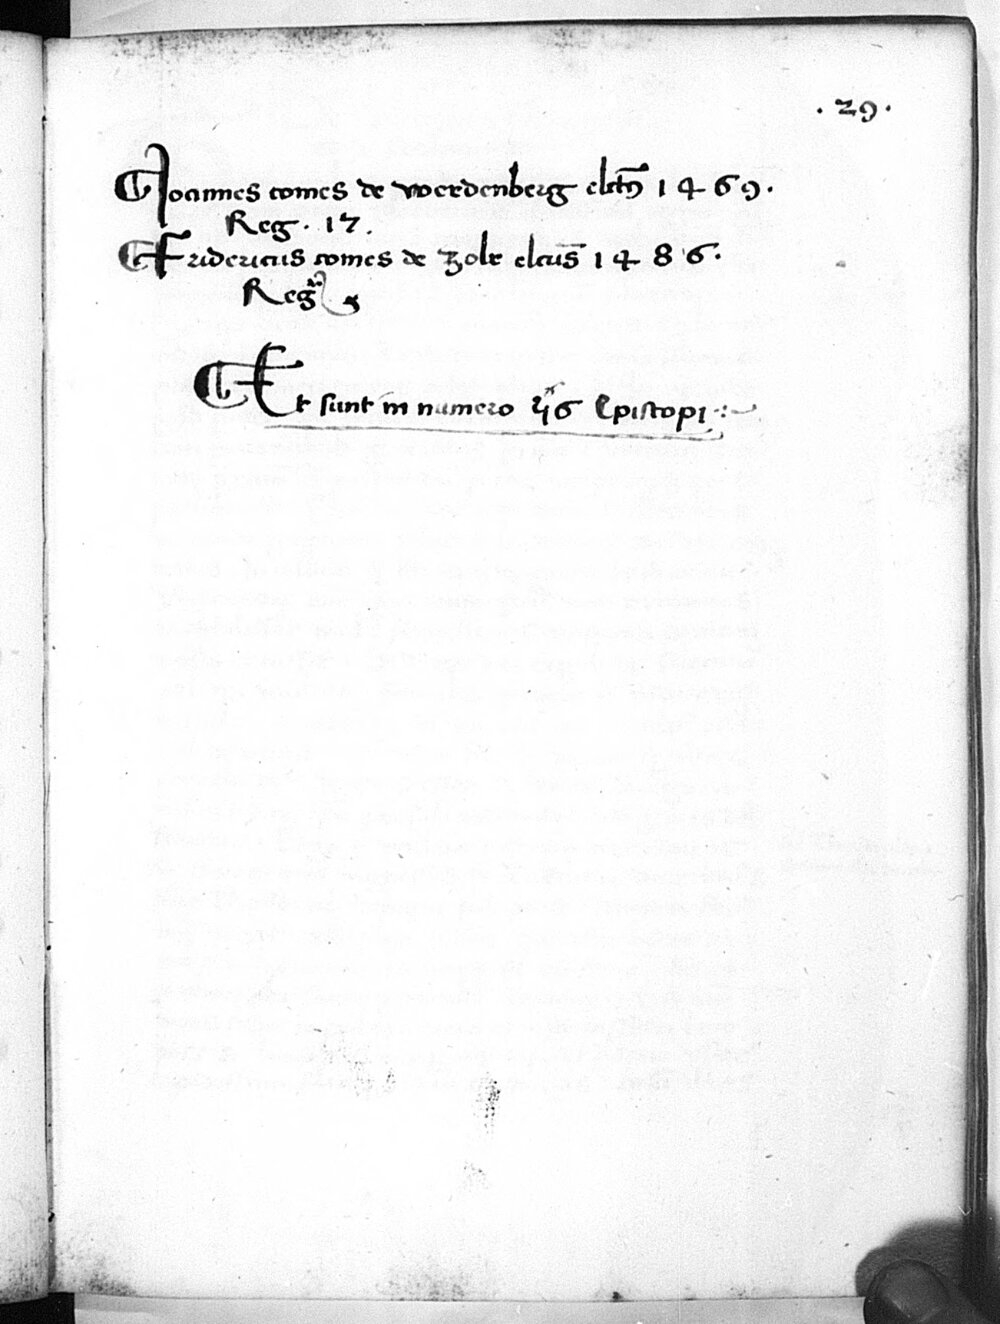 . 29 .
Joannes comes de werdenberg elctus 1469.
Reg. 17.
Fridericus comes de Zolr elcus 1486.
Reg
Et sunt in numero Episcopi